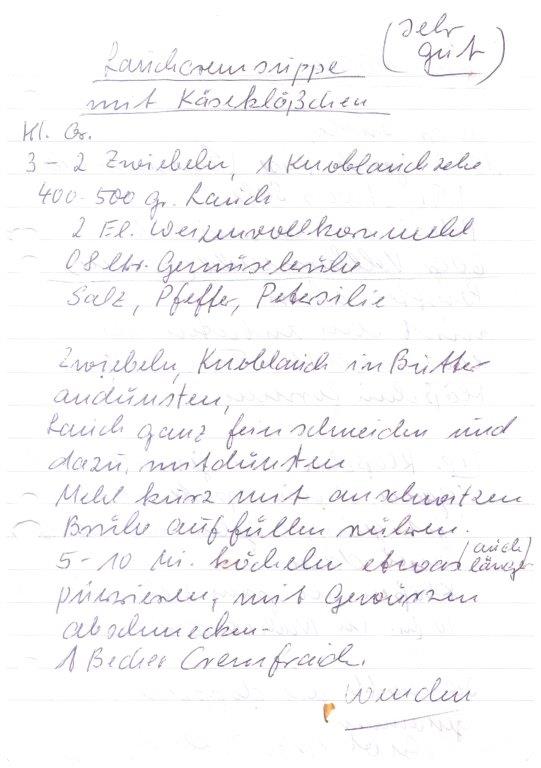 (sehr
gut)
Lauchcremsuppe
mit Käseklößchen
Kl. Gr.
3-2 Zwiebeln, 1 Knoblauchzehe
400-500 gr. Lauch
2 El. Weizenvollkornmehl
0 8 ltr. Gemüsebrühe
Salz, Pfeffer, Petersilie
Zwiebeln, Knoblauch in Butter
andünsten,
Lauch ganz fein schneiden und
dazu, mitdünsten
Mehl kurz mit anschwitzen
Brühe auffüllen rühren.
5-10 Mi. köcheln etwas (auch länger)
pürrieren, mit Gewürzen
abschmecken-
1 Becher Cremfraich.
Wenden